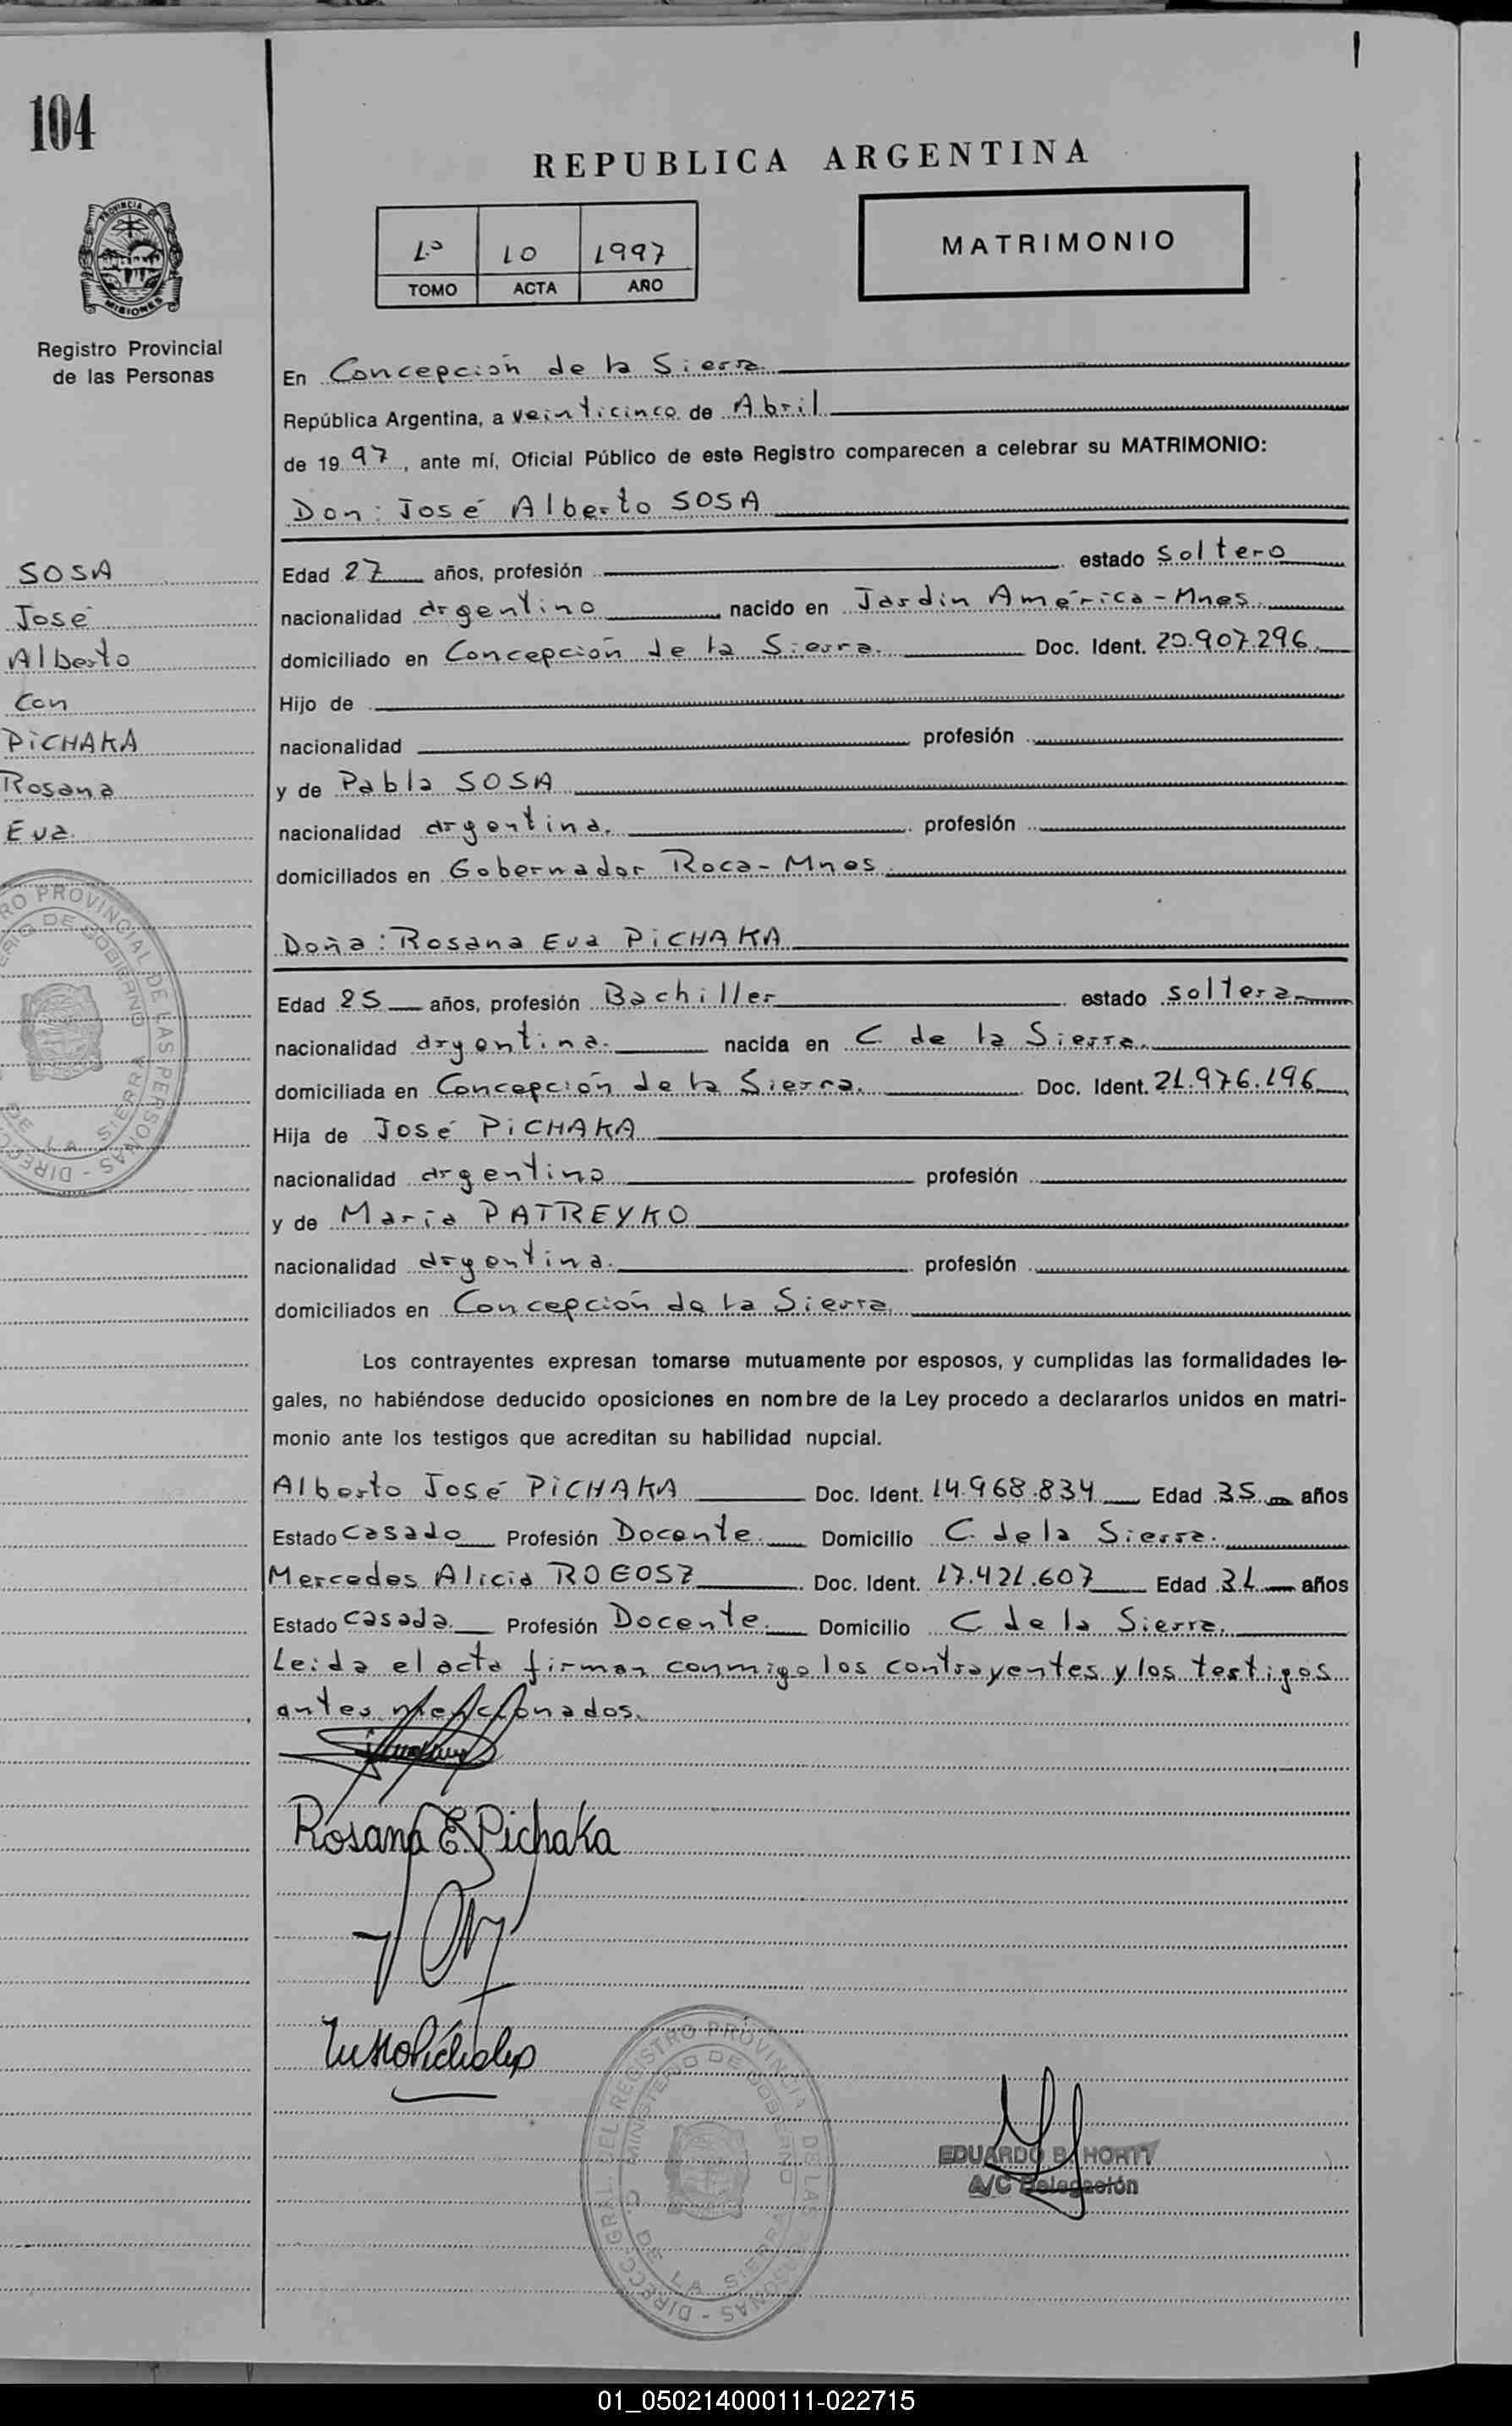 104
PROVINCIA DE
MISIONES
Registro Provincial
de las Personas
REPUBLICA ARGENTINA
1º 10 1997
TOMO ACTA AÑO
MATRIMONIO
En Concepción de la Sierra
República Argentina, a veinticinco de Abril
de 1997, ante mí, Oficial Público de este Registro comparecen a celebrar su MATRIMONIO:
Don: José Alberto SOSA
Edad 27 años, profesión estado soltero
nacionalidad argentino nacido en Jardín América-Mnes.
domiciliado en Concepción de la Sierra. Doc. Ident. 20.907.296.
Hijo de
nacionalidad profesión
y de Pabla SOSA
nacionalidad argentina. profesión
domiciliados en Gobernador Roca-Mnes.
Doña: Rosana Eva PiCHAKA
Edad 25 años, profesión Bachiller estado soltera
nacionalidad argentina. nacida en C. de la Sierra.
domiciliada en Concepción de la Sierra. Doc. Ident. 21.976.196
Hija de José PiCHAKA
nacionalidad argentino profesión
y de María PATREYKO
nacionalidad argentina. profesión
domiciliados en Concepción de la Sierra.
Los contrayentes expresan tomarse mutuamente por esposos, y cumplidas las formalidades le-
gales, no habiéndose deducido oposiciones en nombre de la Ley procedo a declararlos unidos en matri-
monio ante los testigos que acreditan su habilidad nupcial.
Alberto José PiCHAKA Doc. Ident. 14.968.834 Edad 35 años
Estado casado Profesión Docente. Domicilio C. de la Sierra.
Mercedes Alicia ROGOSZ Doc. Ident. 17.421.607 Edad 31 años
Estado casada. Profesión Docente. Domicilio C de la Sierra.
Leida el acta firman conmigo los contrayentes y los testigos
antes mencionados.
Rosana E. Pichaka
EDUARDO B. HORTT
A/C Delegación
SOSA
José
Alberto
con
PiCHAKA
Rosana
Eva.
RO PROVINCIAL DE LAS PERSONAS - DIREC
DE GOBIERNO
DE LA SIERRA
DIRECC. GRAL. DEL REGISTRO PROVINCIAL DE LAS PERSONAS
MINISTERIO DE GOBIERNO
C. DE LA SIERRA
01_050214000111-022715